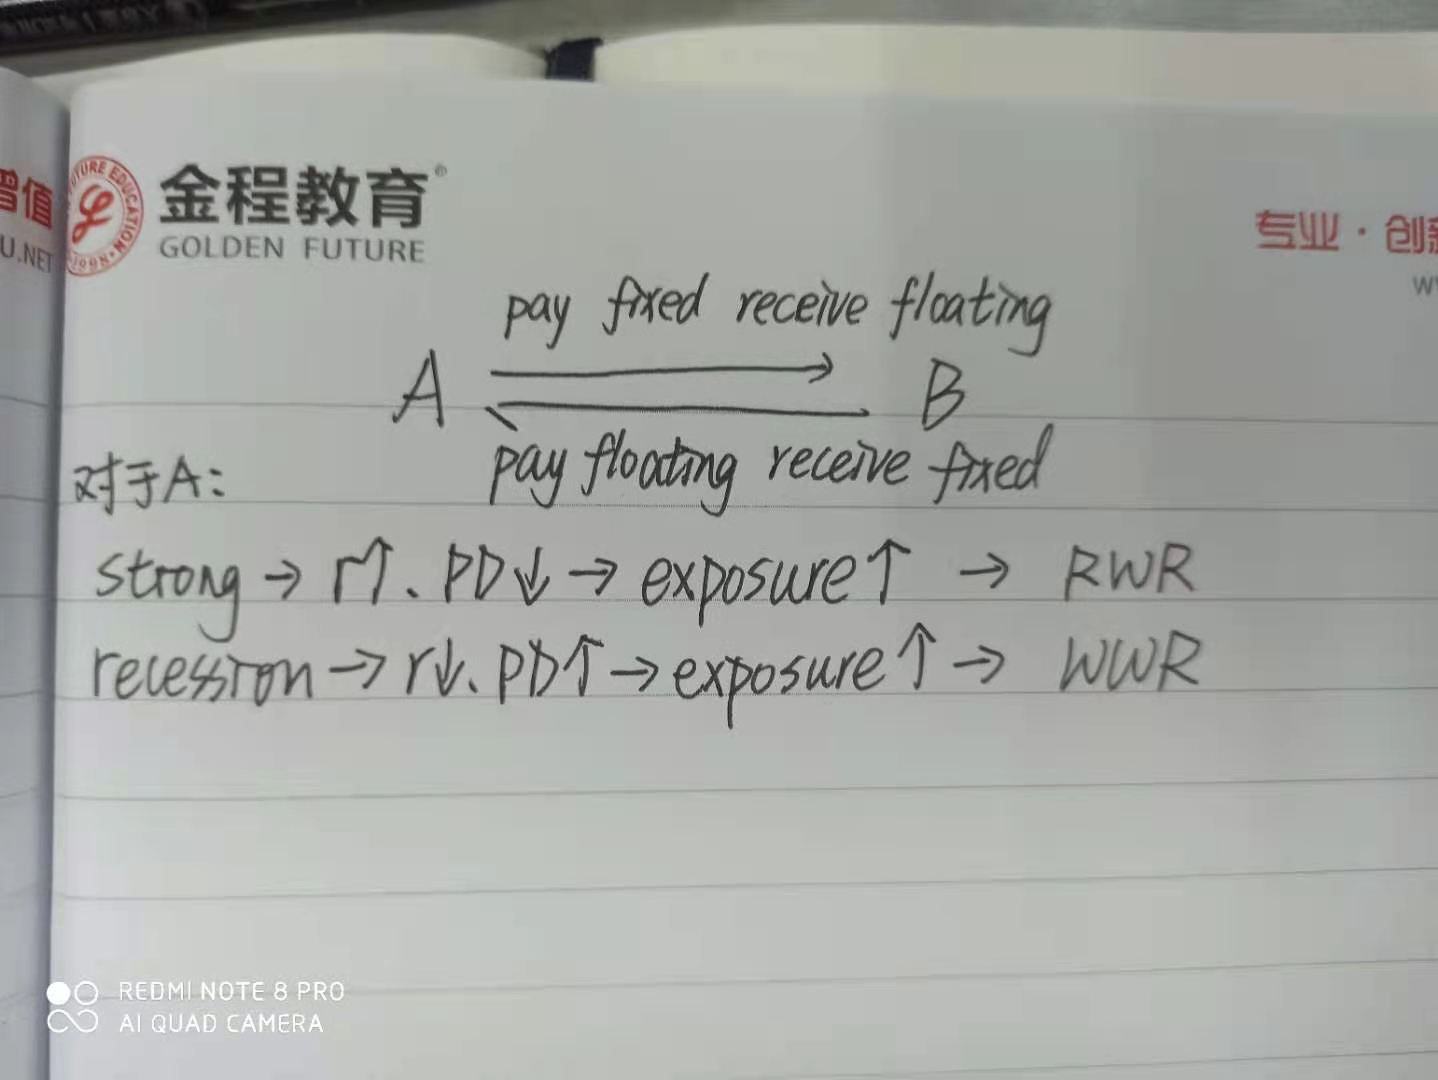 增值
U.NET
FUTURE EDUCATION
·1998·
金程教育®
GOLDEN FUTURE
专业·创新
pay fixed receive floating
A B
pay floating receive fixed
对于A:
strong → r↑. PD↓ → exposure↑ → RWR
recession → r↓. PD↑ → exposure↑ → WWR
REDMI NOTE 8 PRO
AI QUAD CAMERA